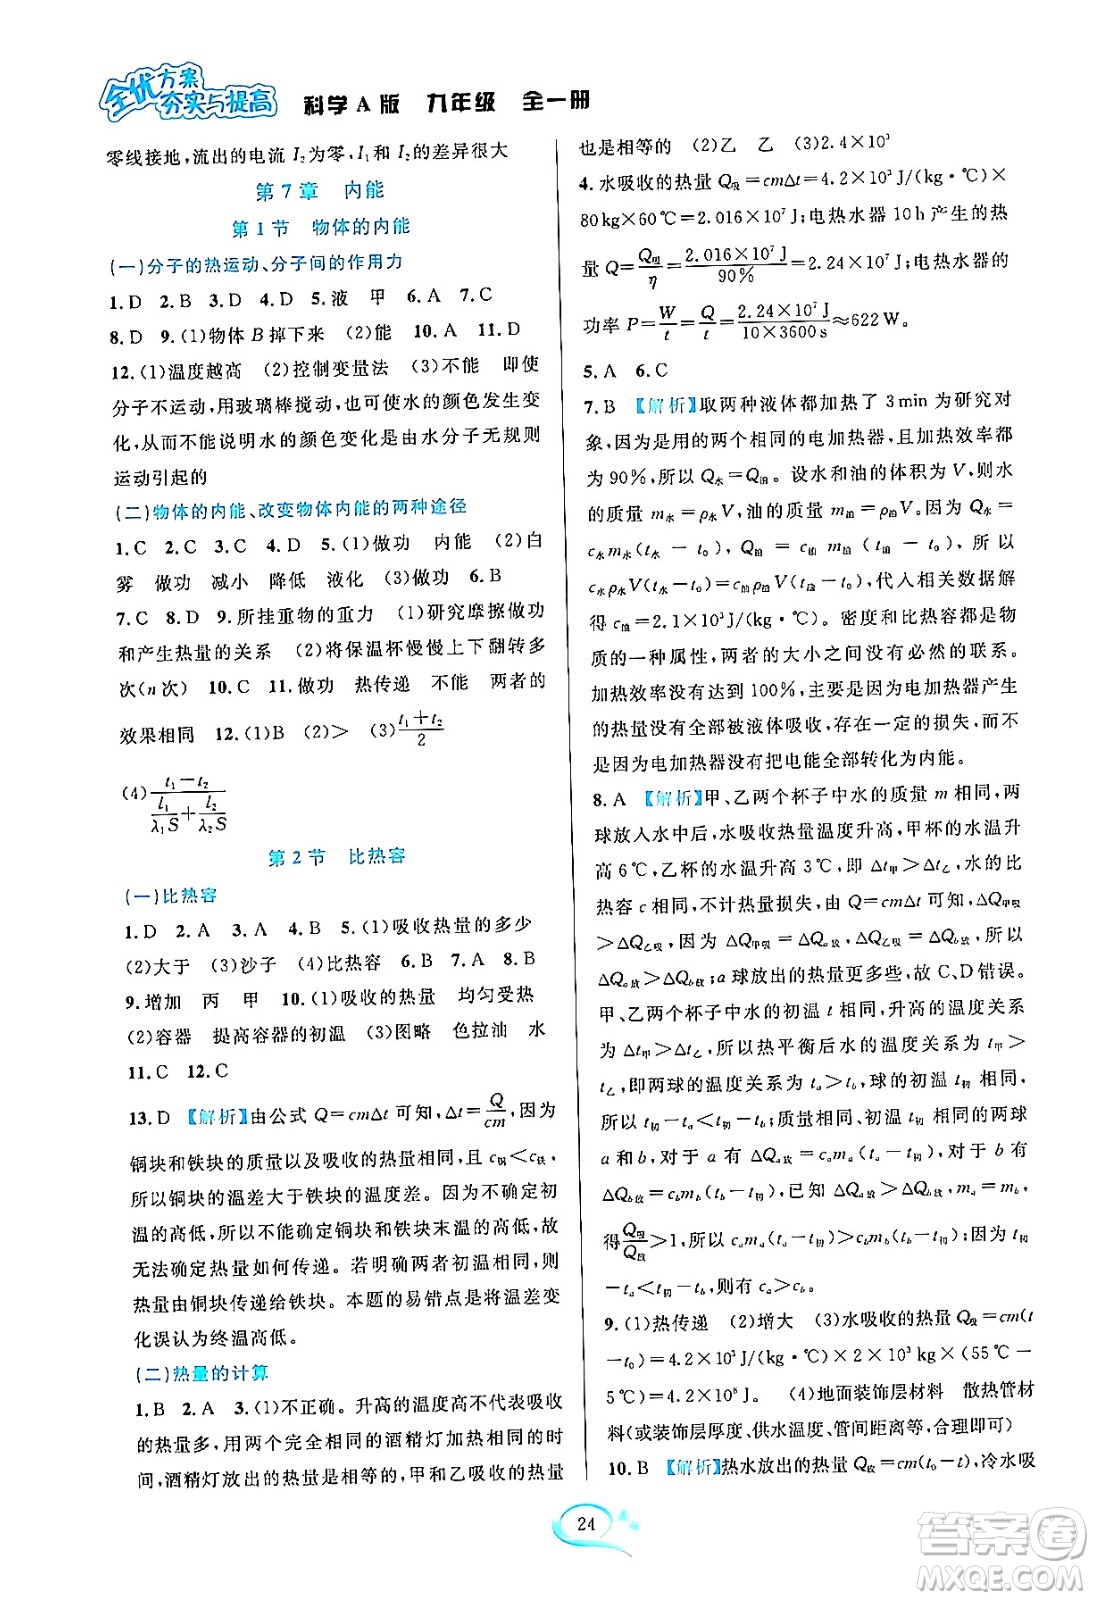 全优方案
夯实与提高
科学A版 九年级 全一册
零线接地,流出的电流 I₂ 为零,I₁ 和 I₂ 的差异很大
第7章 内能
第1节 物体的内能
(一)分子的热运动、分子间的作用力
1.D 2.B 3.D 4.D 5.液 甲 6.A 7.C
8.D 9.(1)物体 B 掉下来 (2)能 10.A 11.D
12.(1)温度越高 (2)控制变量法 (3)不能 即使
分子不运动,用玻璃棒搅动,也可使水的颜色发生变
化,从而不能说明水的颜色变化是由水分子无规则
运动引起的
(二)物体的内能、改变物体内能的两种途径
1.C 2.C 3.C 4.D 5.(1)做功 内能 (2)白
雾 做功 减小 降低 液化 (3)做功 6.B
7.C 8.D 9.所挂重物的重力 (1)研究摩擦做功
和产生热量的关系 (2)将保温杯慢慢上下翻转多
次(n次) 10.C 11.做功 热传递 不能 两者的
效果相同 12.(1)B (2)> (3)(t₁+t₂)/2
(4)(t₁−t₂)/(l₁/(λ₁S)+l₂/(λ₂S))
第2节 比热容
(一)比热容
1.D 2.A 3.A 4.B 5.(1)吸收热量的多少
(2)大于 (3)沙子 (4)比热容 6.C 7.A 8.B
9.增加 丙 甲 10.(1)吸收的热量 均匀受热
(2)容器 提高容器的初温 (3)图略 色拉油 水
11.C 12.C
13.D 【解析】由公式 Q=cmΔt 可知,Δt=Q/cm,因为
铜块和铁块的质量以及吸收的热量相同,且 c铜<c铁,
所以铜块的温差大于铁块的温度差。因为不确定初
温的高低,所以不能确定铜块和铁块末温的高低,故
无法确定热量如何传递。若两者初温相同,则不可能
热量由铜块传递给铁块。本题的易错点是将温差变
化误认为终温高低。
(二)热量的计算
1.B 2.A 3.(1)不正确。升高的温度高不代表吸收
的热量多,用两个完全相同的酒精灯加热相同的时
间,酒精灯放出的热量是相等的,甲和乙吸收的热量
也是相等的 (2)乙 乙 (3)2.4×10³
4.水吸收的热量 Q吸=cmΔt=4.2×10³ J/(kg·℃)×
80 kg×60℃=2.016×10⁷ J;电热水器 10 h 产生的热
量 Q=Q吸/η=2.016×10⁷ J/90%=2.24×10⁷ J;电热水器的
功率 P=W/t=Q/t=2.24×10⁷ J/10×3600 s≈622 W。
5.A 6.C
7.B 【解析】取两种液体都加热了 3 min 为研究对
象,因为是用的两个相同的电加热器,且加热效率都
为 90%,所以 Q水=Q油。设水和油的体积为 V,则水
的质量 m水=ρ水V,油的质量 m油=ρ油V,因为 Q水=
c水m水(t水−t₀),Q油=c油m油(t油−t₀),所以
c水ρ水V(t水−t₀)=c油ρ油V(t油−t₀),代入相关数据解
得 c油=2.1×10³ J/(kg·℃)。密度和比热容都是物
质的一种属性,两者的大小之间没有必然的联系。
加热效率没有达到 100%,主要是因为电加热器产生
的热量没有全部被液体吸收,存在一定的损失,而不
是因为电加热器没有把电能全部转化为内能。
8.A 【解析】甲、乙两个杯子中水的质量 m 相同,两
球放入水中后,水吸收热量温度升高,甲杯的水温升
高 6℃,乙杯的水温升高 3℃,即 Δt甲>Δt乙,水的
比热容 c 相同,不计热量损失,由 Q=cmΔt 可知ΔQ甲吸
>ΔQ乙吸,因为 ΔQ甲吸=ΔQa放,ΔQ乙吸=ΔQb放,所以
ΔQa放>ΔQb放;a 球放出的热量更多些,故 C、D 错误。
甲、乙两个杯子中水的初温 t 相同,升高的温度关系
为 Δt甲>Δt乙,所以热平衡后水的温度关系为 t甲>
t乙,即两球的温度关系为 ta>tb,球的初温 t初 相同,
所以 t初−ta<t初−tb;质量相同、初温相同的两球
a 和 b,对于 a 有 ΔQa放=cama(ta−t初),对于 b 有
ΔQb放=cbmb(tb−t初),已知 ΔQa放>ΔQb放,ma=mb,
得Qa放/Qb放>1,所以 cama(ta−t初)>cbmb(tb−t初),因为 t初
−ta<t初−tb,则有 ca>cb。
9.(1)热传递 (2)增大 (3)水吸收的热量 Q吸=cm(t
−t₀)=4.2×10³ J/(kg·℃)×2×10³ kg×(55℃−
5℃)=4.2×10⁸ J。 (4)地面装饰层材料 散热管材
料(或装饰层厚度、供水温度、管间距离等,合理即可)
10.B 【解析】热水放出的热量 Q放=cm(t₀−t),冷水吸
24
答案圈
MXQE.COM